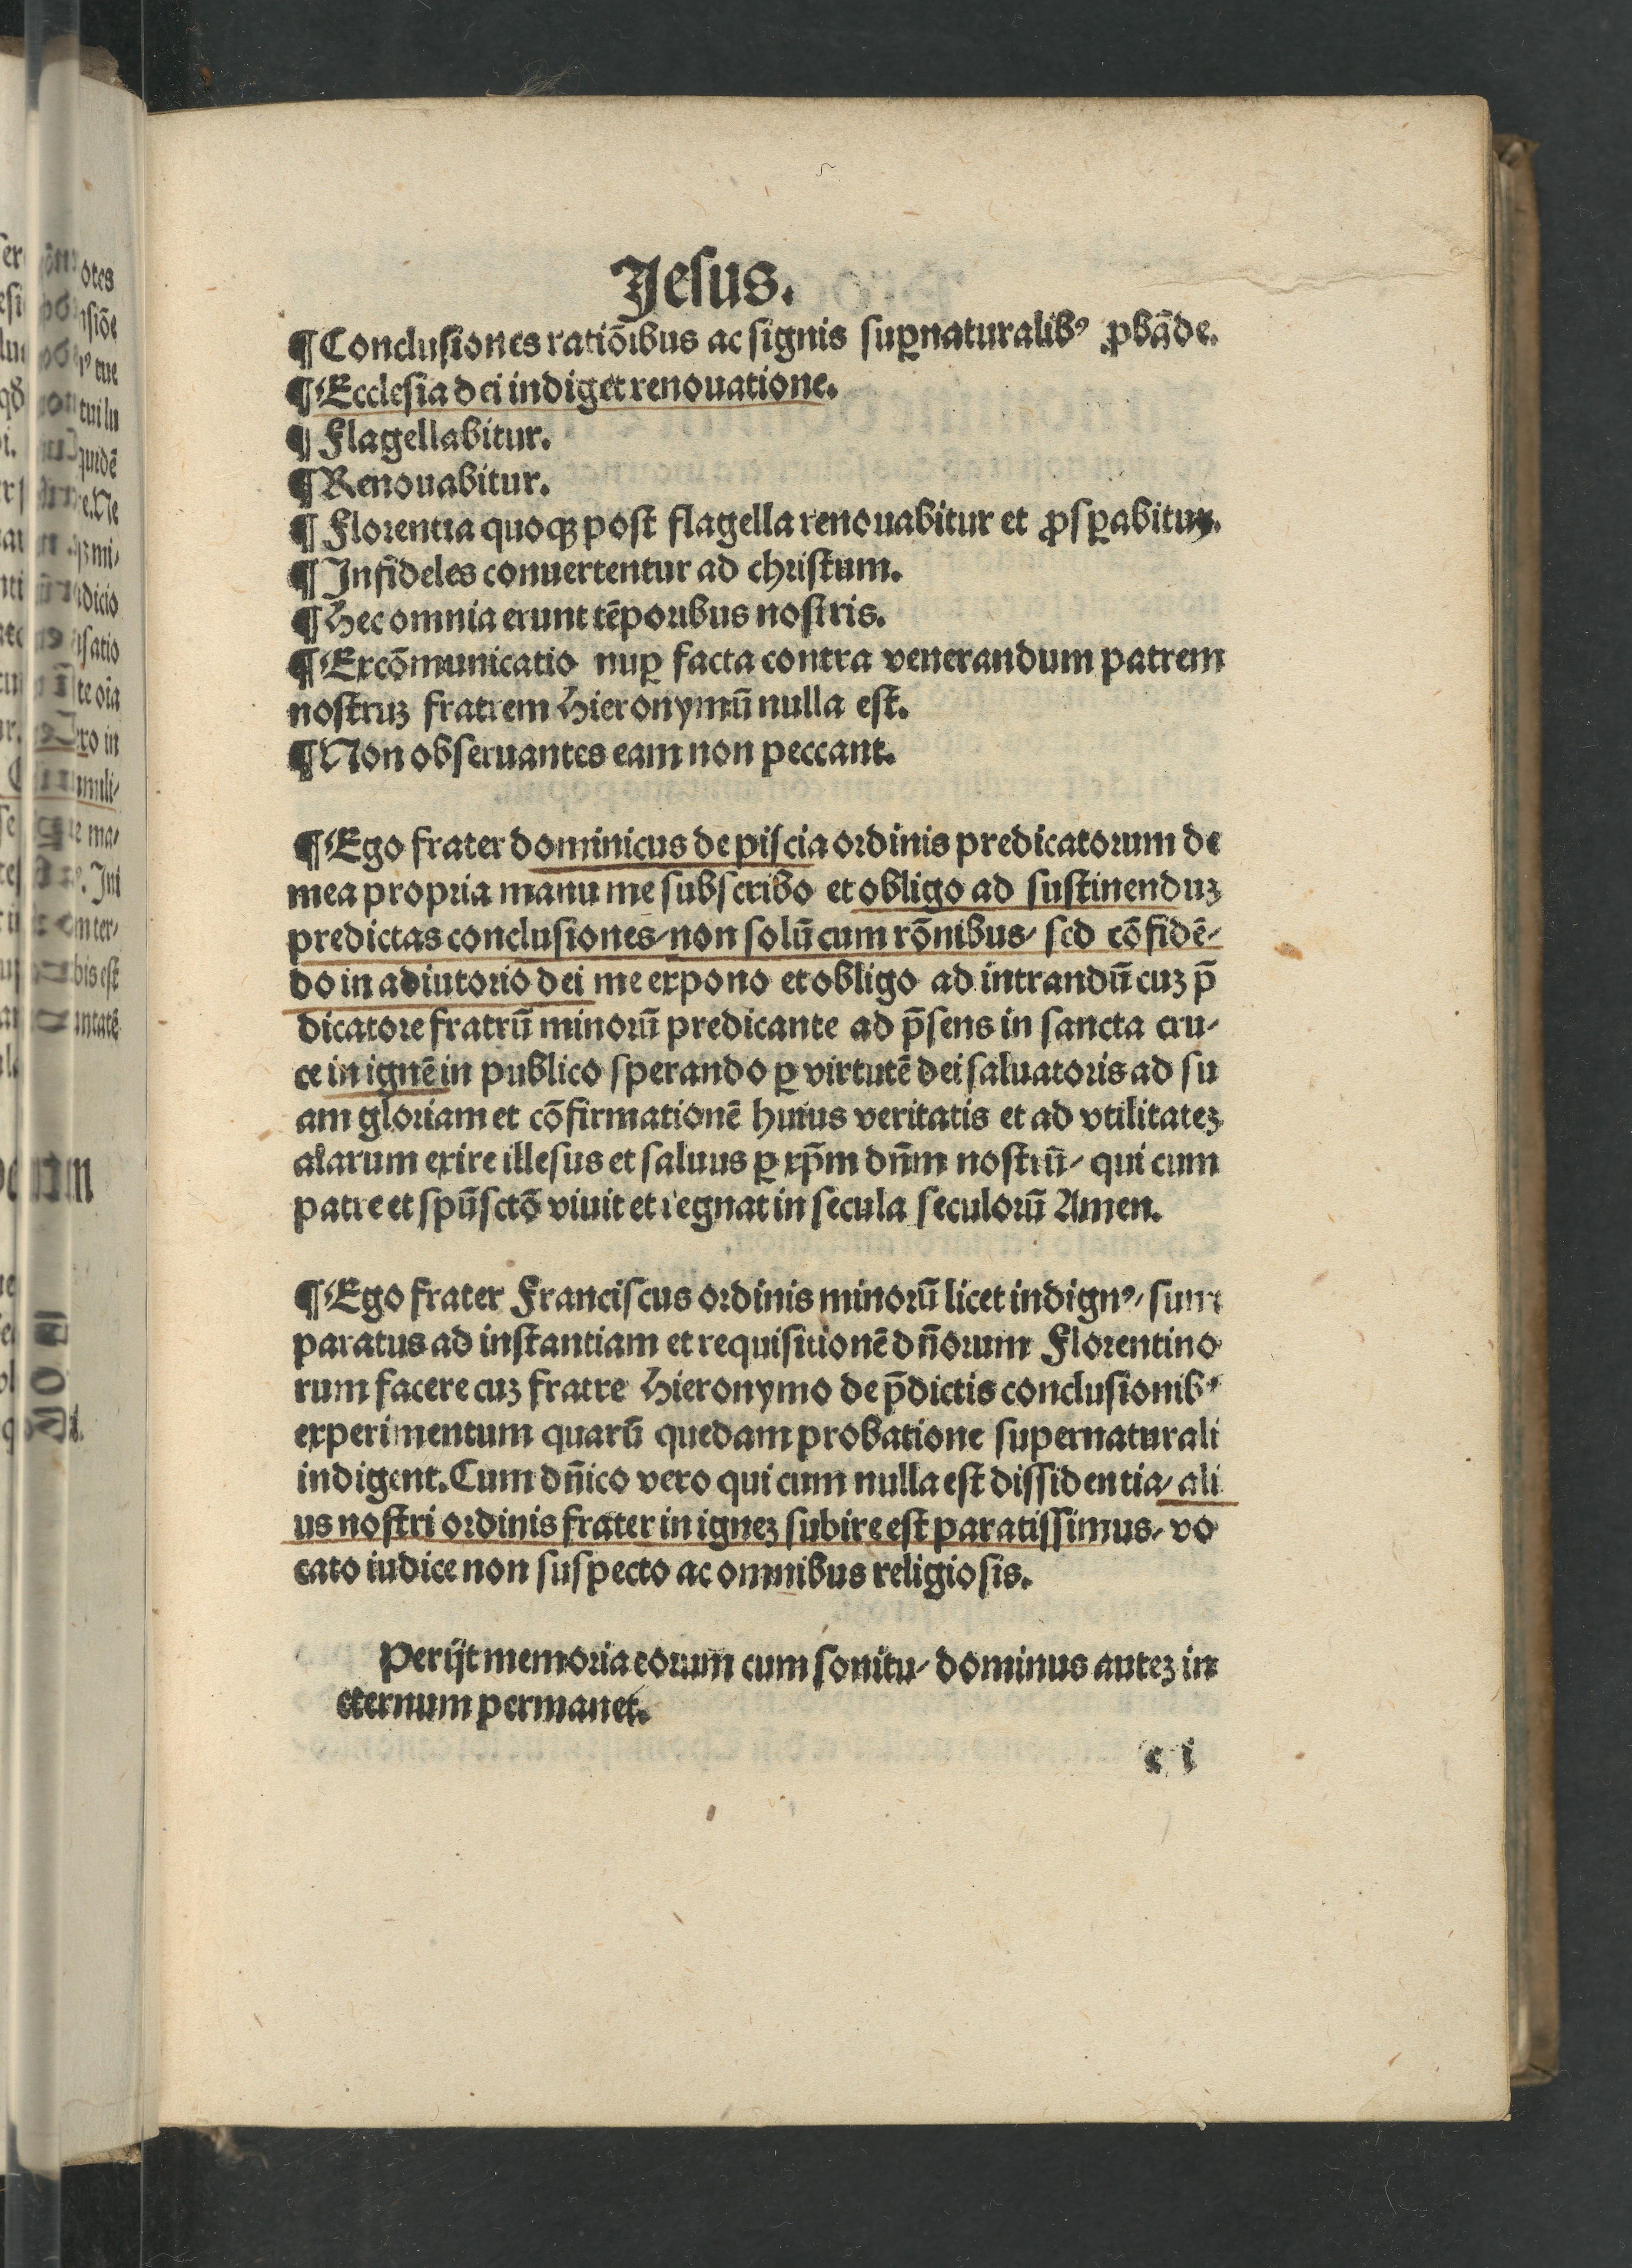 Jesus.
¶ Conclusiones ratiōibus ac signis suꝑnaturalibꝰ ꝓbāde.
¶ Ecclesia dei indiget renouatione.
¶ Flagellabitur.
¶ Renouabitur.
¶ Florentia quoqꝫ post flagella renouabitur et ꝓsꝑabitur.
¶ Infideles conuertentur ad christum.
¶ Hec omnia erunt tēporibus nostris.
¶ Excōmunicatio nuꝑ facta contra venerandum patrem
nostruꝫ fratrem Hieronymū nulla est.
¶ Non obseruantes eam non peccant.
¶ Ego frater dominicus de piscia ordinis predicatorum de
mea propria manu me subscribo et obligo ad sustinenduꝫ
predictas conclusiones/ non solū cum rōnibus/ sed cōfidē/
do in adiutorio dei me expono et obligo ad intrandū cuꝫ p̄
dicatore fratrū minorū predicante ad p̄sens in sancta cru/
ce in ignē in publico sperando ꝑ virtutē dei saluatoris ad su
am gloriam et cōfirmationē huius veritatis et ad vtilitateꝫ
alarum exire illesus et saluus ꝑ xp̄m dn̄m nostrū/ qui cum
patre et spūsctō viuit et regnat in secula seculorū Amen.
¶ Ego frater Franciscus ordinis minorū licet indignꝰ/ sum
paratus ad instantiam et requisitionē dn̄orum Florentino
rum facere cuꝫ fratre Hieronymo de p̄dictis conclusionibꝰ
experimentum quarū quedam probatione supernaturali
indigent. Cum dn̄ico vero qui cum nulla est dissidentia/ ali
us nostri ordinis frater in igneꝫ subire est paratissimus/ vo
cato iudice non suspecto ac omnibus religiosis.
Perijt memoria eorum cum sonitu/ dominus auteꝫ in
eternum permanet.